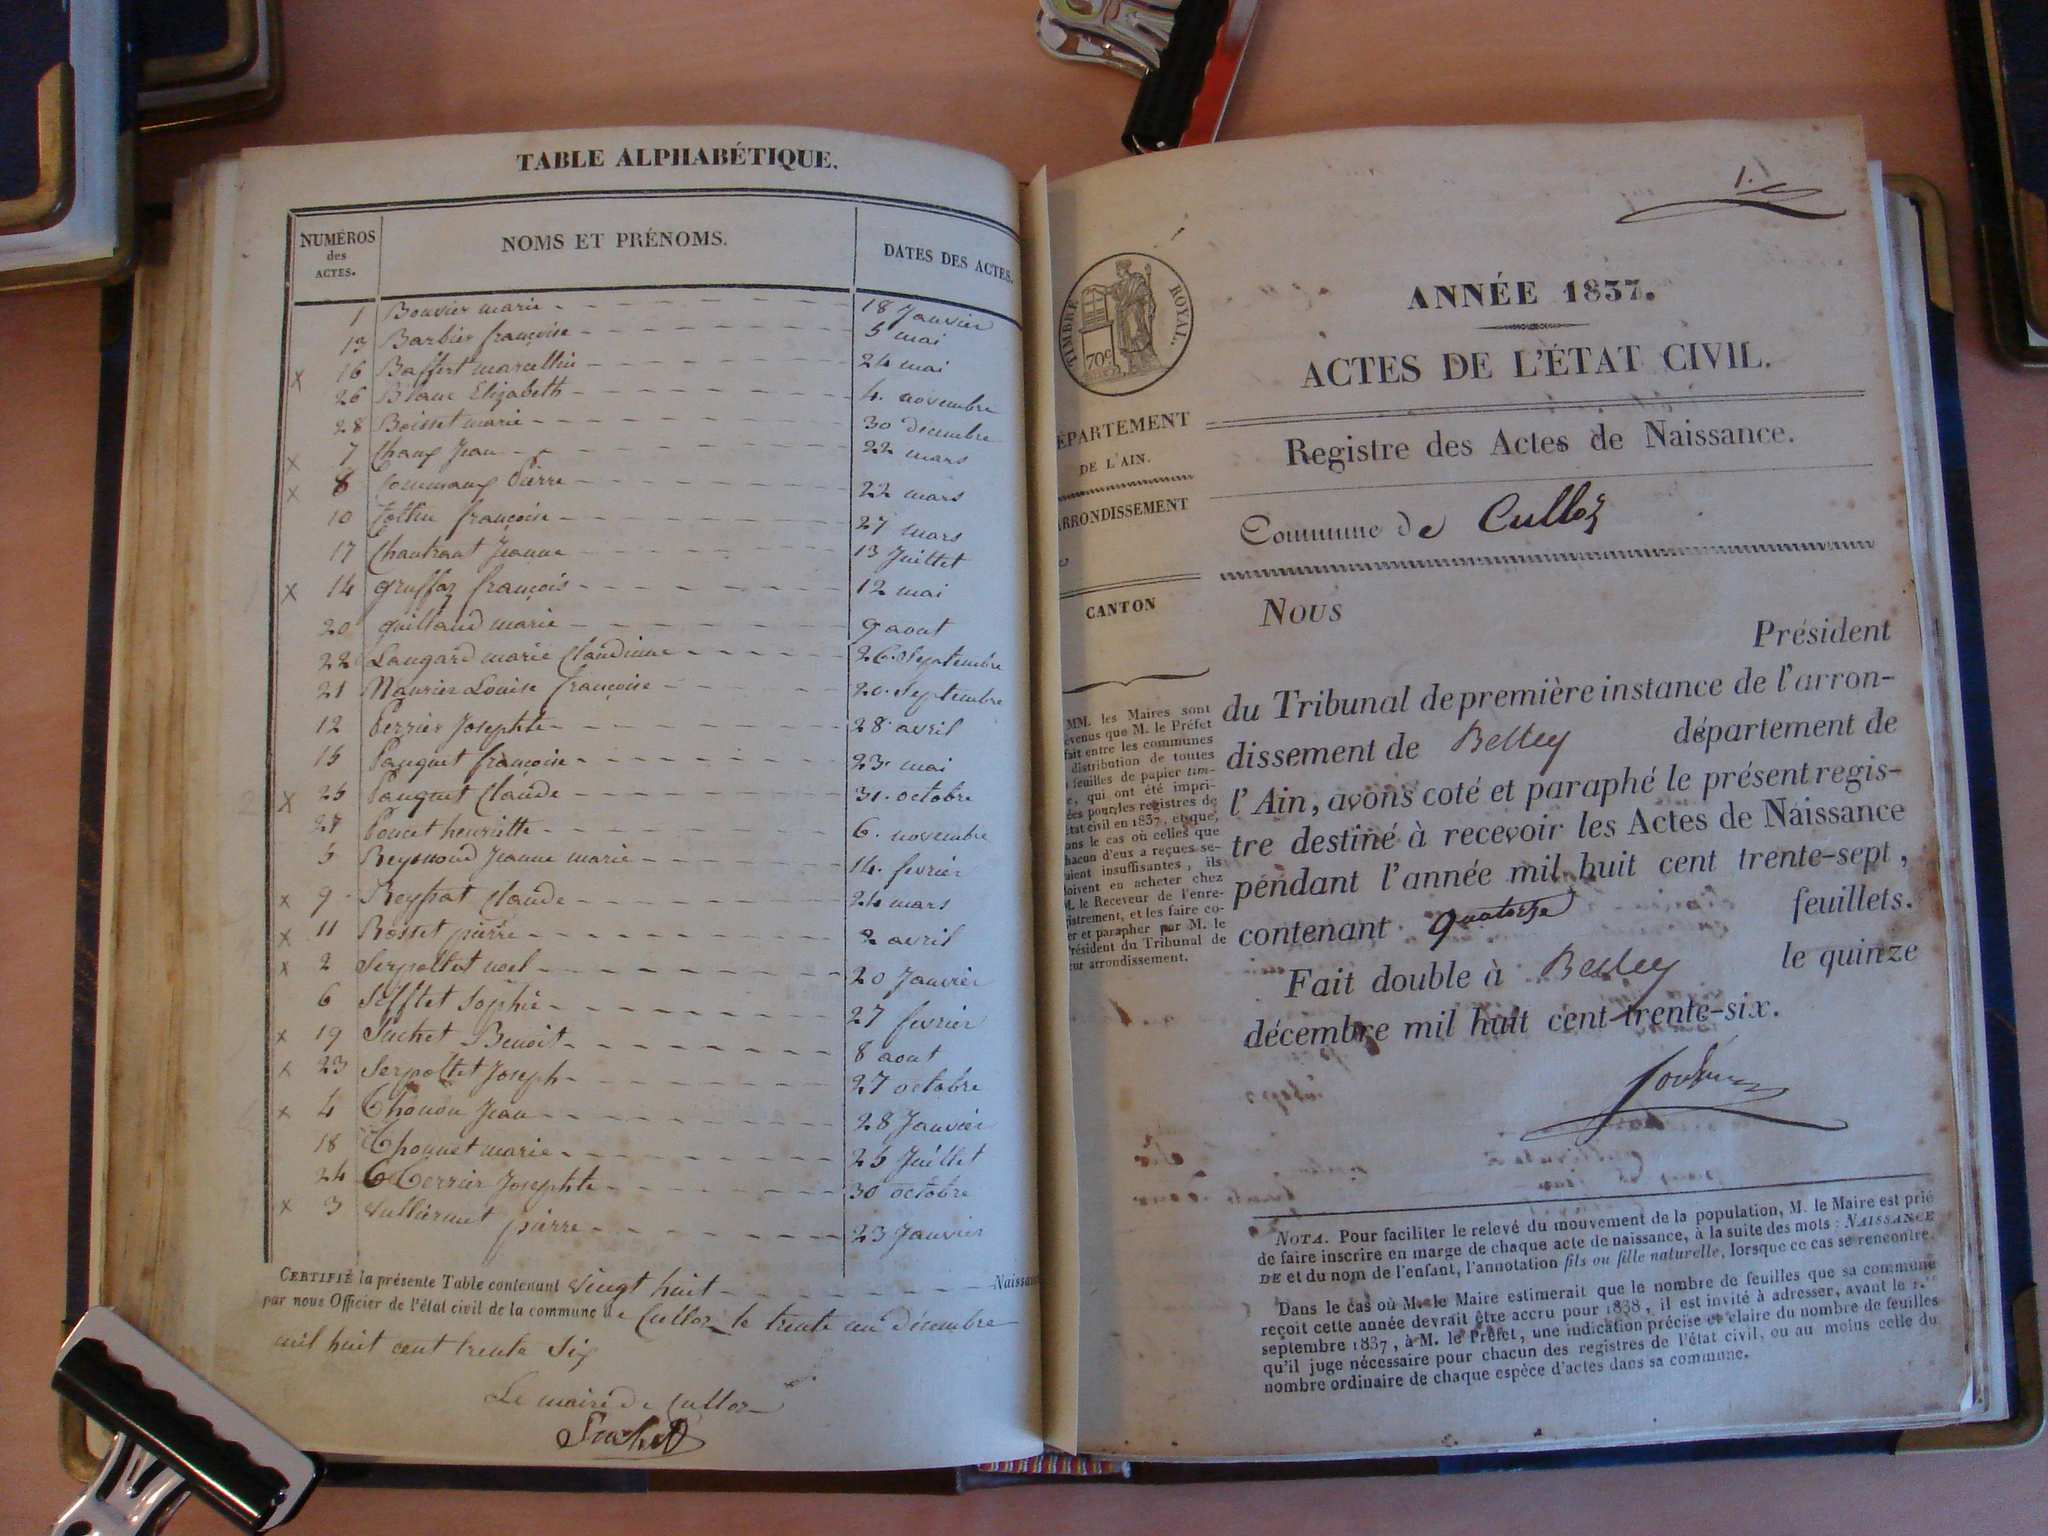 TABLE ALPHABÉTIQUE.
NUMÉROS des ACTES. NOMS ET PRÉNOMS. DATES DES ACTES.
1 Bouvier marie 18 Janvier
13 Barbier françoise 5 mai
x 16 Baffert marcellin 24 mai
26 Blanc Elizabeth 4. novembre
28 Boisset marie 30 décembre
x 7 Chaux Jean 22 mars
x 8 Commaux Pierre 22 mars
10 françoise 27 mars
17 Chautraut Jeanne 13 Juillet
x 14 gruffaz françois 12 mai
20 guilland marie 9 aout
22 Laugard marie Claudinne 26. Septembre
21 Maurier Louise françoise 20. Septembre
12 Perrier Josephte 28 avril
15 Pauquet françoise 23. mai
x 25 Pauquet Claude 31. octobre
27 Poncet henriette 6. novembre
5 Reymond Jeanne marie 14. fevrier
x 9 Claude 24 mars
x 11 Rosset pierre 2 avril
x 2 Serpollet noel 20 Janvier
6 Sophie 27 fevrier
x 19 Suchet Benoit 8 aout
x 23 Serpollet Joseph 27 octobre
x 4 Thonon Jean 28 Janvier
18 Thonnet marie 25 Juillet
24 Josephte 30 octobre
x 3 Vulliermet pierre 23 Janvier
CERTIFIÉ la présente Table contenant vingt huit Naissan
par nous Officier de l'état civil de la commune de Culloz le trente un décembre
mil huit cent trente Six
Le maire de Culloz
Suchet
1.
TIMBRE ROYAL.
70c
ANNÉE 1837.
ACTES DE L'ÉTAT CIVIL.
ÉPARTEMENT
DE L'AIN.
ARRONDISSEMENT
CANTON
MM. les Maires sont
évenus que M. le Préfet
fait entre les communes
distribution de toutes
feuilles de papier tim-
e, qui ont été impri-
ées pour les registres de
état civil en 1837, et que,
ans le cas où celles que
hacun d'eux a reçues se-
aient insuffisantes, ils
doivent en acheter chez
M. le Receveur de l'enre-
gistrement, et les faire co-
er et parapher par M. le
résident du Tribunal de
eur arrondissement.
Registre des Actes de Naissance.
Commune de Culloz
Nous
Président
du Tribunal de première instance de l'arron-
dissement de Belley département de
l'Ain, avons coté et paraphé le présent regis-
tre destiné à recevoir les Actes de Naissance
pendant l'année mil huit cent trente-sept,
contenant quatorze feuillets.
Fait double à Belley le quinze
décembre mil huit cent trente-six.
NOTA. Pour faciliter le relevé du mouvement de la population, M. le Maire est prié
de faire inscrire en marge de chaque acte de naissance, à la suite des mots : NAISSANCE
DE et du nom de l'enfant, l'annotation fils ou fille naturelle, lorsque ce cas se rencontre.
Dans le cas où M. le Maire estimerait que le nombre de feuilles que sa commune
reçoit cette année devrait être accru pour 1838, il est invité à adresser, avant le 1.er
septembre 1837, à M. le Préfet, une indication précise et claire du nombre de feuilles
qu'il juge nécessaire pour chacun des registres de l'état civil, ou au moins celle du
nombre ordinaire de chaque espèce d'actes dans sa commune.